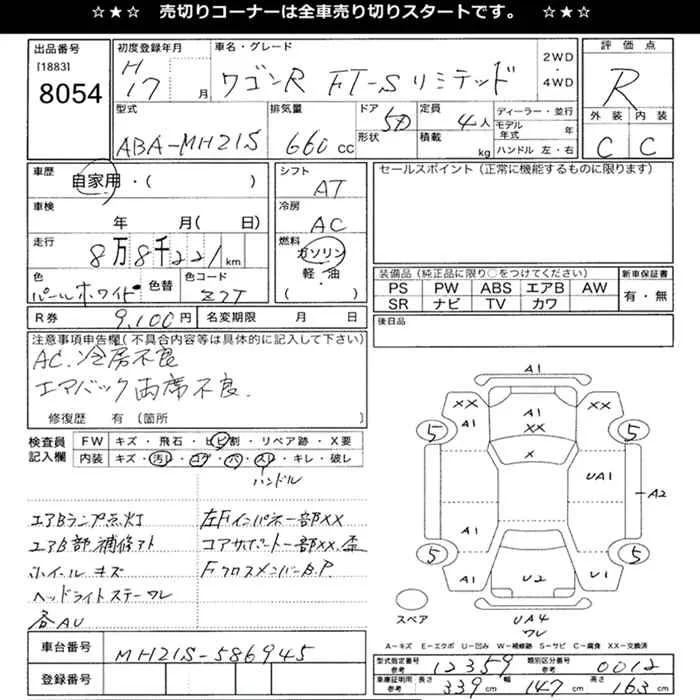 ☆★☆ 売切りコーナーは全車売り切りスタートです。 ☆★☆
出品番号 [1883] 8054
初度登録年月 H17 月
車名・グレード ワゴンR FT-Sリミテッド
2WD・4WD
評価点 R
外装 C 内装 C
型式 ABA-MH21S
排気量 660 cc
ドア形状 5D
定員 4人
積載 kg
ディーラー・並行
モデル年式 年
ハンドル 左・右
車歴 自家用・( )
シフト AT
セールスポイント(正常に機能するものに限ります)
車検 年 月( 日)
冷房 AC
走行 8万8千221 km
燃料 ガソリン 軽・油 ( )
色 パールホワイト 色替 色コード Z7T
装備品(純正品に限り○をつけてください)
PS PW ABS エアB AW
SR ナビ TV カワ
新車保証書 有・無
R券 9,100円 名変期限 月 日
後日品
注意事項申告欄(不具合内容等は具体的に記入して下さい)
AC.冷房不良
エアバック両席不良.
修復歴 有(箇所
検査員記入欄
FW キズ・飛石・ヒビ割・リペア跡・X要
内装 キズ・汚レ・コゲ・穴・スレ・キレ・破レ
ハンドル
エアBランプ点灯
エアB部補修アト
ホイールキズ
ヘッドライトステーワレ
各AU
左Fインパネ一部XX
コアサポート一部XX.歪
FクロスメンバーB.P.
A1
XX A1 XX
A1 XX
5 X 5
UA1
A2
A1
5 5
A1 U2 U1
スペア
UA4
ワレ
A-キズ E-エクボ U-凹み W-補修跡 S-サビ C-腐食 XX-交換済
車台番号 MH21S-586945
登録番号
型式指定番号 参考 12359
類別区分番号 参考 0012
車庫証明用 参考 長さ 339 cm 幅 147 cm 高さ 163 cm